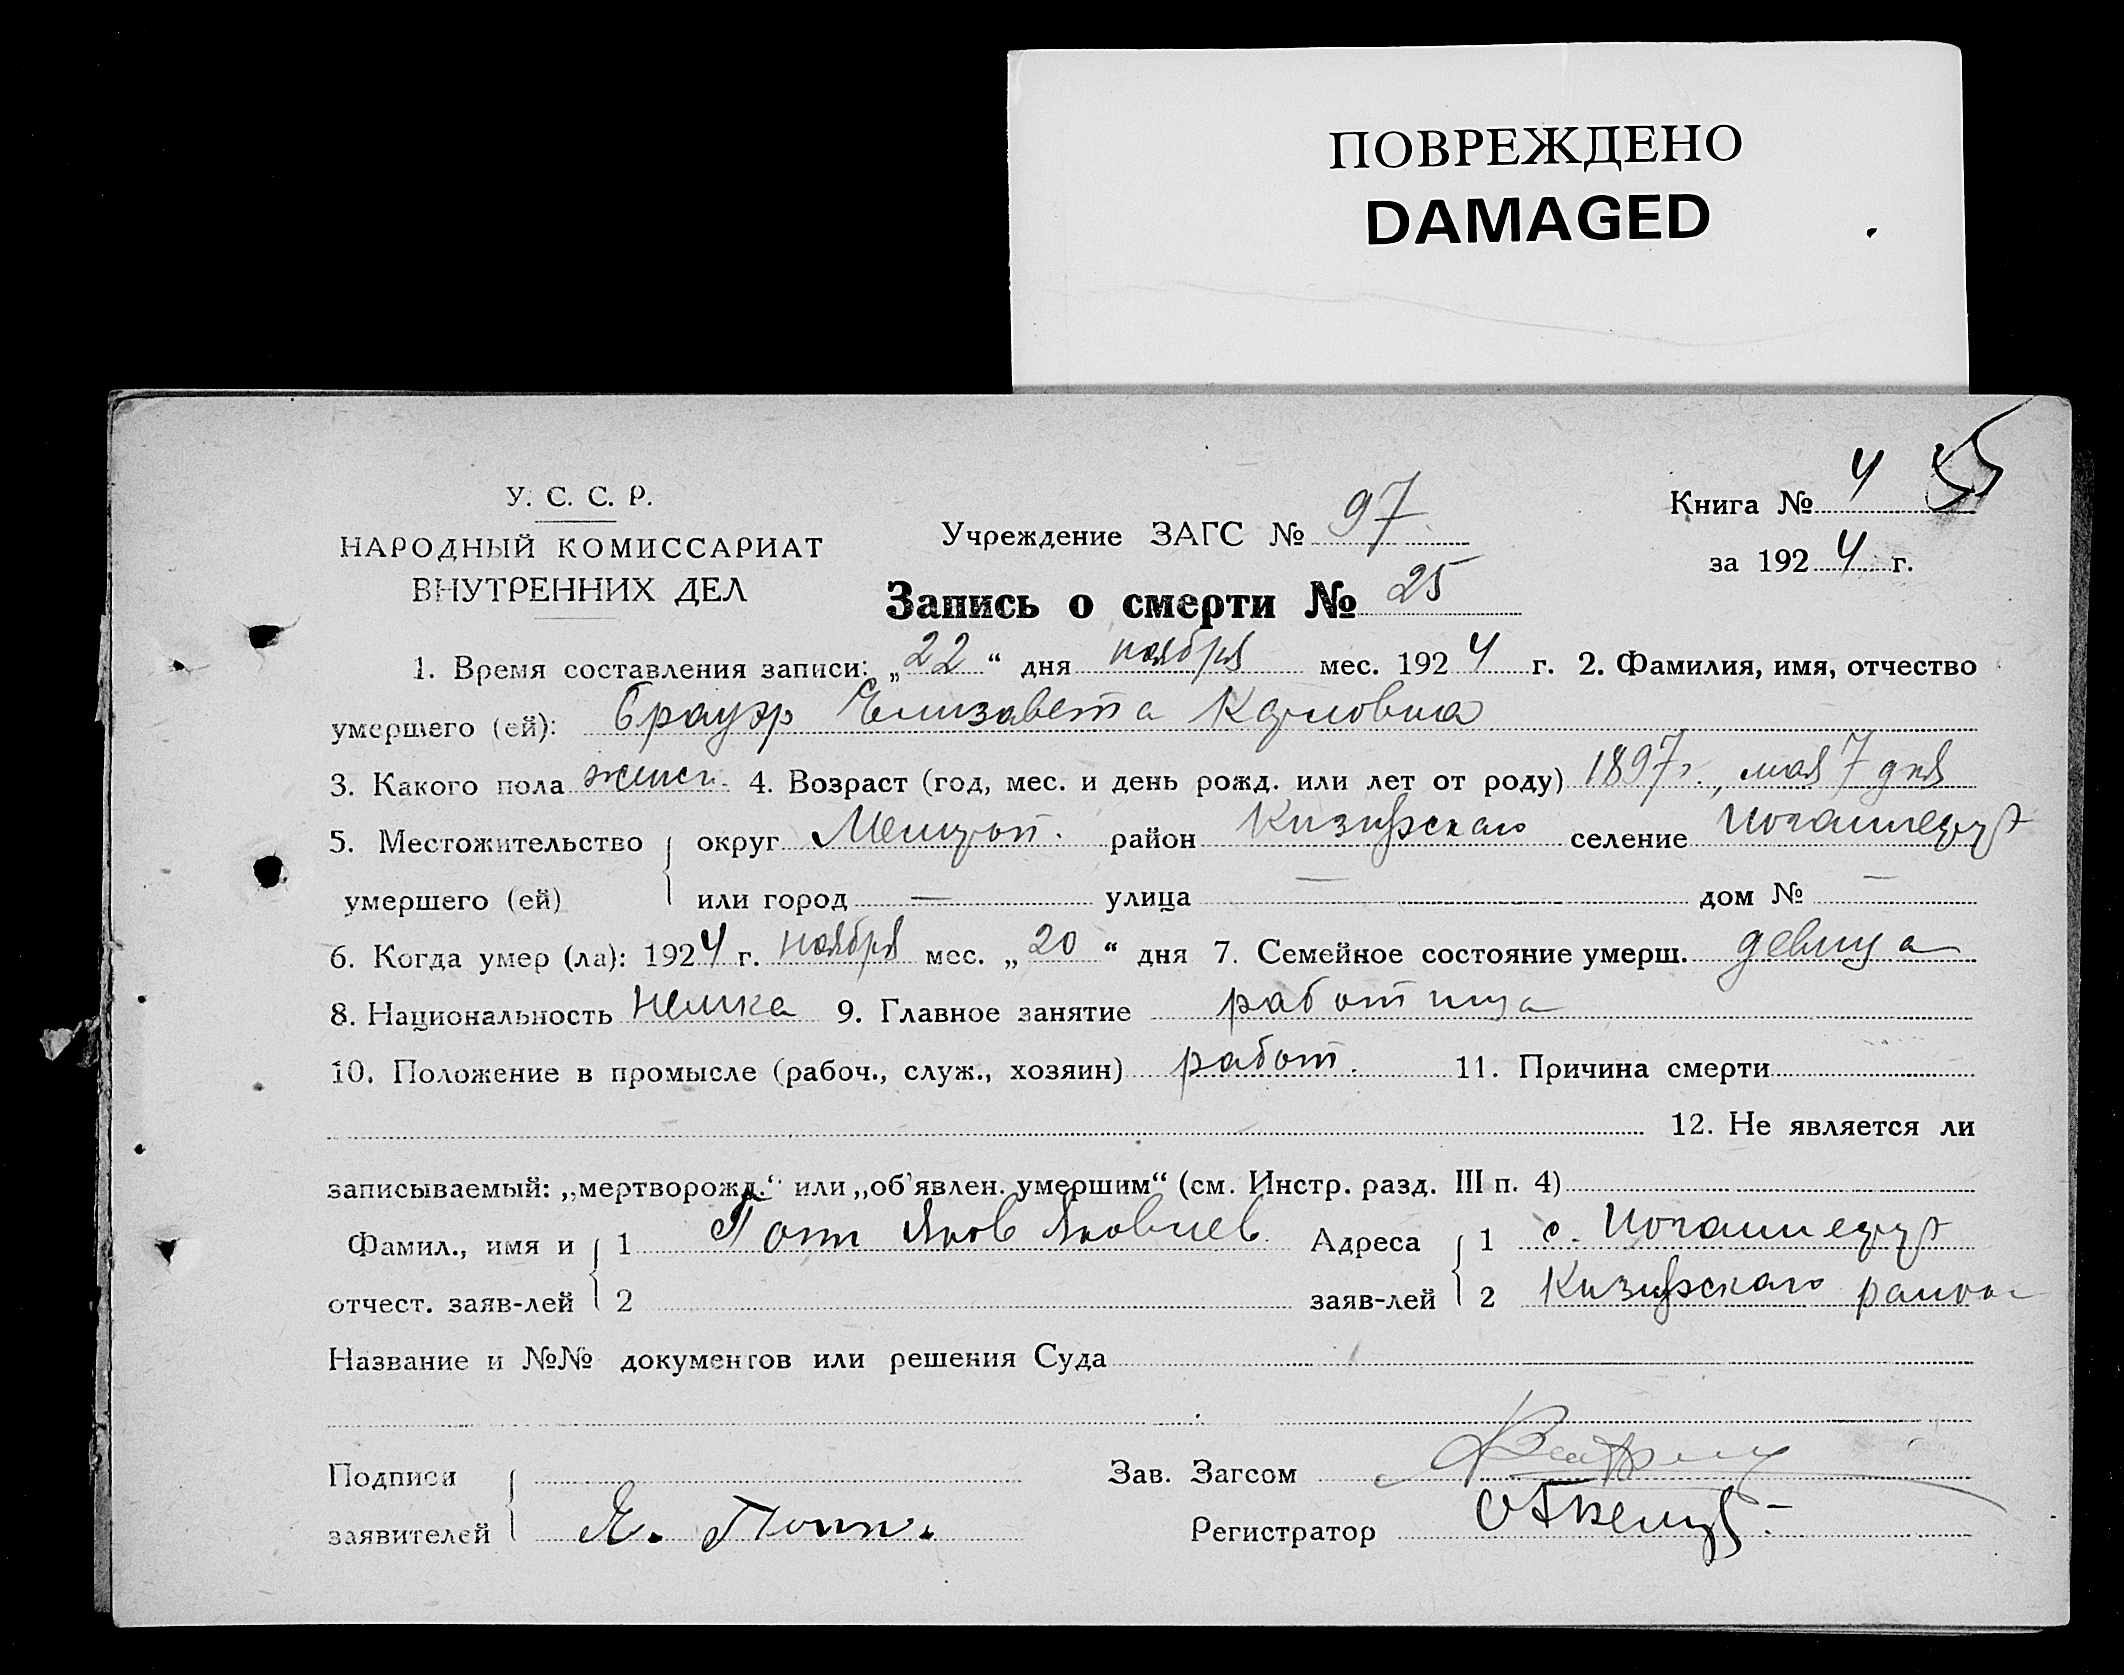 ПОВРЕЖДЕНО
DAMAGED
У. С. С. Р.
НАРОДНЫЙ КОМИССАРИАТ
ВНУТРЕННИХ ДЕЛ
Учреждение ЗАГС № 97
Книга № 4
за 1924 г.
Запись о смерти № 25
1. Время составления записи: „22“ дня ноября мес. 1924 г. 2. Фамилия, имя, отчество
умершего (ей): Брауэр Елизавета Карловна
3. Какого пола женск. 4. Возраст (год, мес. и день рожд. или лет от роду) 1897 г., мая 7 дня
5. Местожительство умершего (ей) округ Мелитоп. район селение
или город — улица — дом № —
6. Когда умер (ла): 1924 г. ноября мес. „20“ дня 7. Семейное состояние умерш. девица
8. Национальность немка 9. Главное занятие работница
10. Положение в промысле (рабоч., служ., хозяин) работ. 11. Причина смерти
12. Не является ли
записываемый: „мертворожд.“ или „об'явлен. умершим“ (см. Инстр. разд. III п. 4)
Фамил., имя и отчест. заяв-лей 1 Яков Яковлев. Адреса заяв-лей 1 с.
2 2 района
Название и №№ документов или решения Суда
Подписи заявителей Зав. Загсом
Я. Регистратор